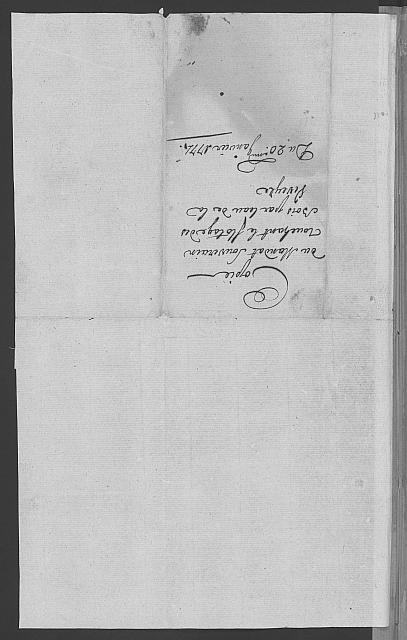 Copie
du Mandat Souverain
touchant le flottage des
bois par l'eau de la
Veveyse
Du 20.e Janvier 1771.